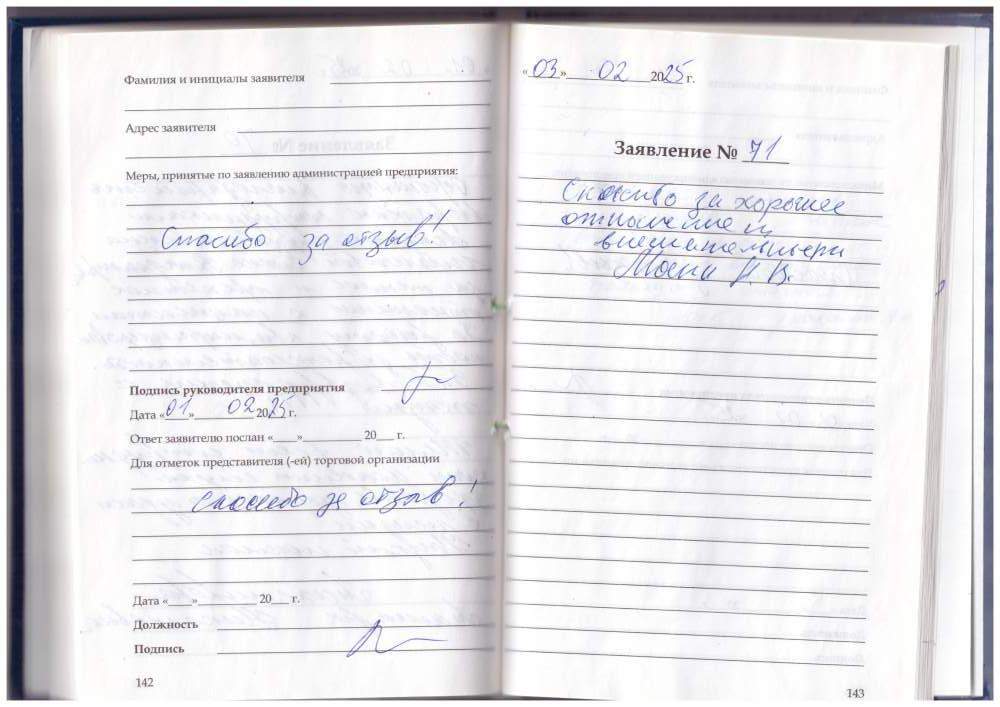 Фамилия и инициалы заявителя
Адрес заявителя
Меры, принятые по заявлению администрацией предприятия:
Спасибо за отзыв!
Подпись руководителя предприятия
Дата «01» 02 2025 г.
Ответ заявителю послан «____»__________ 20___ г.
Для отметок представителя (-ей) торговой организации
Спасибо за отзыв!
Дата «____»__________ 20___ г.
Должность
Подпись
142
«03» 02 2025 г.
Заявление № 71
Спасибо за хорошее
отношение и
Н. В.
143